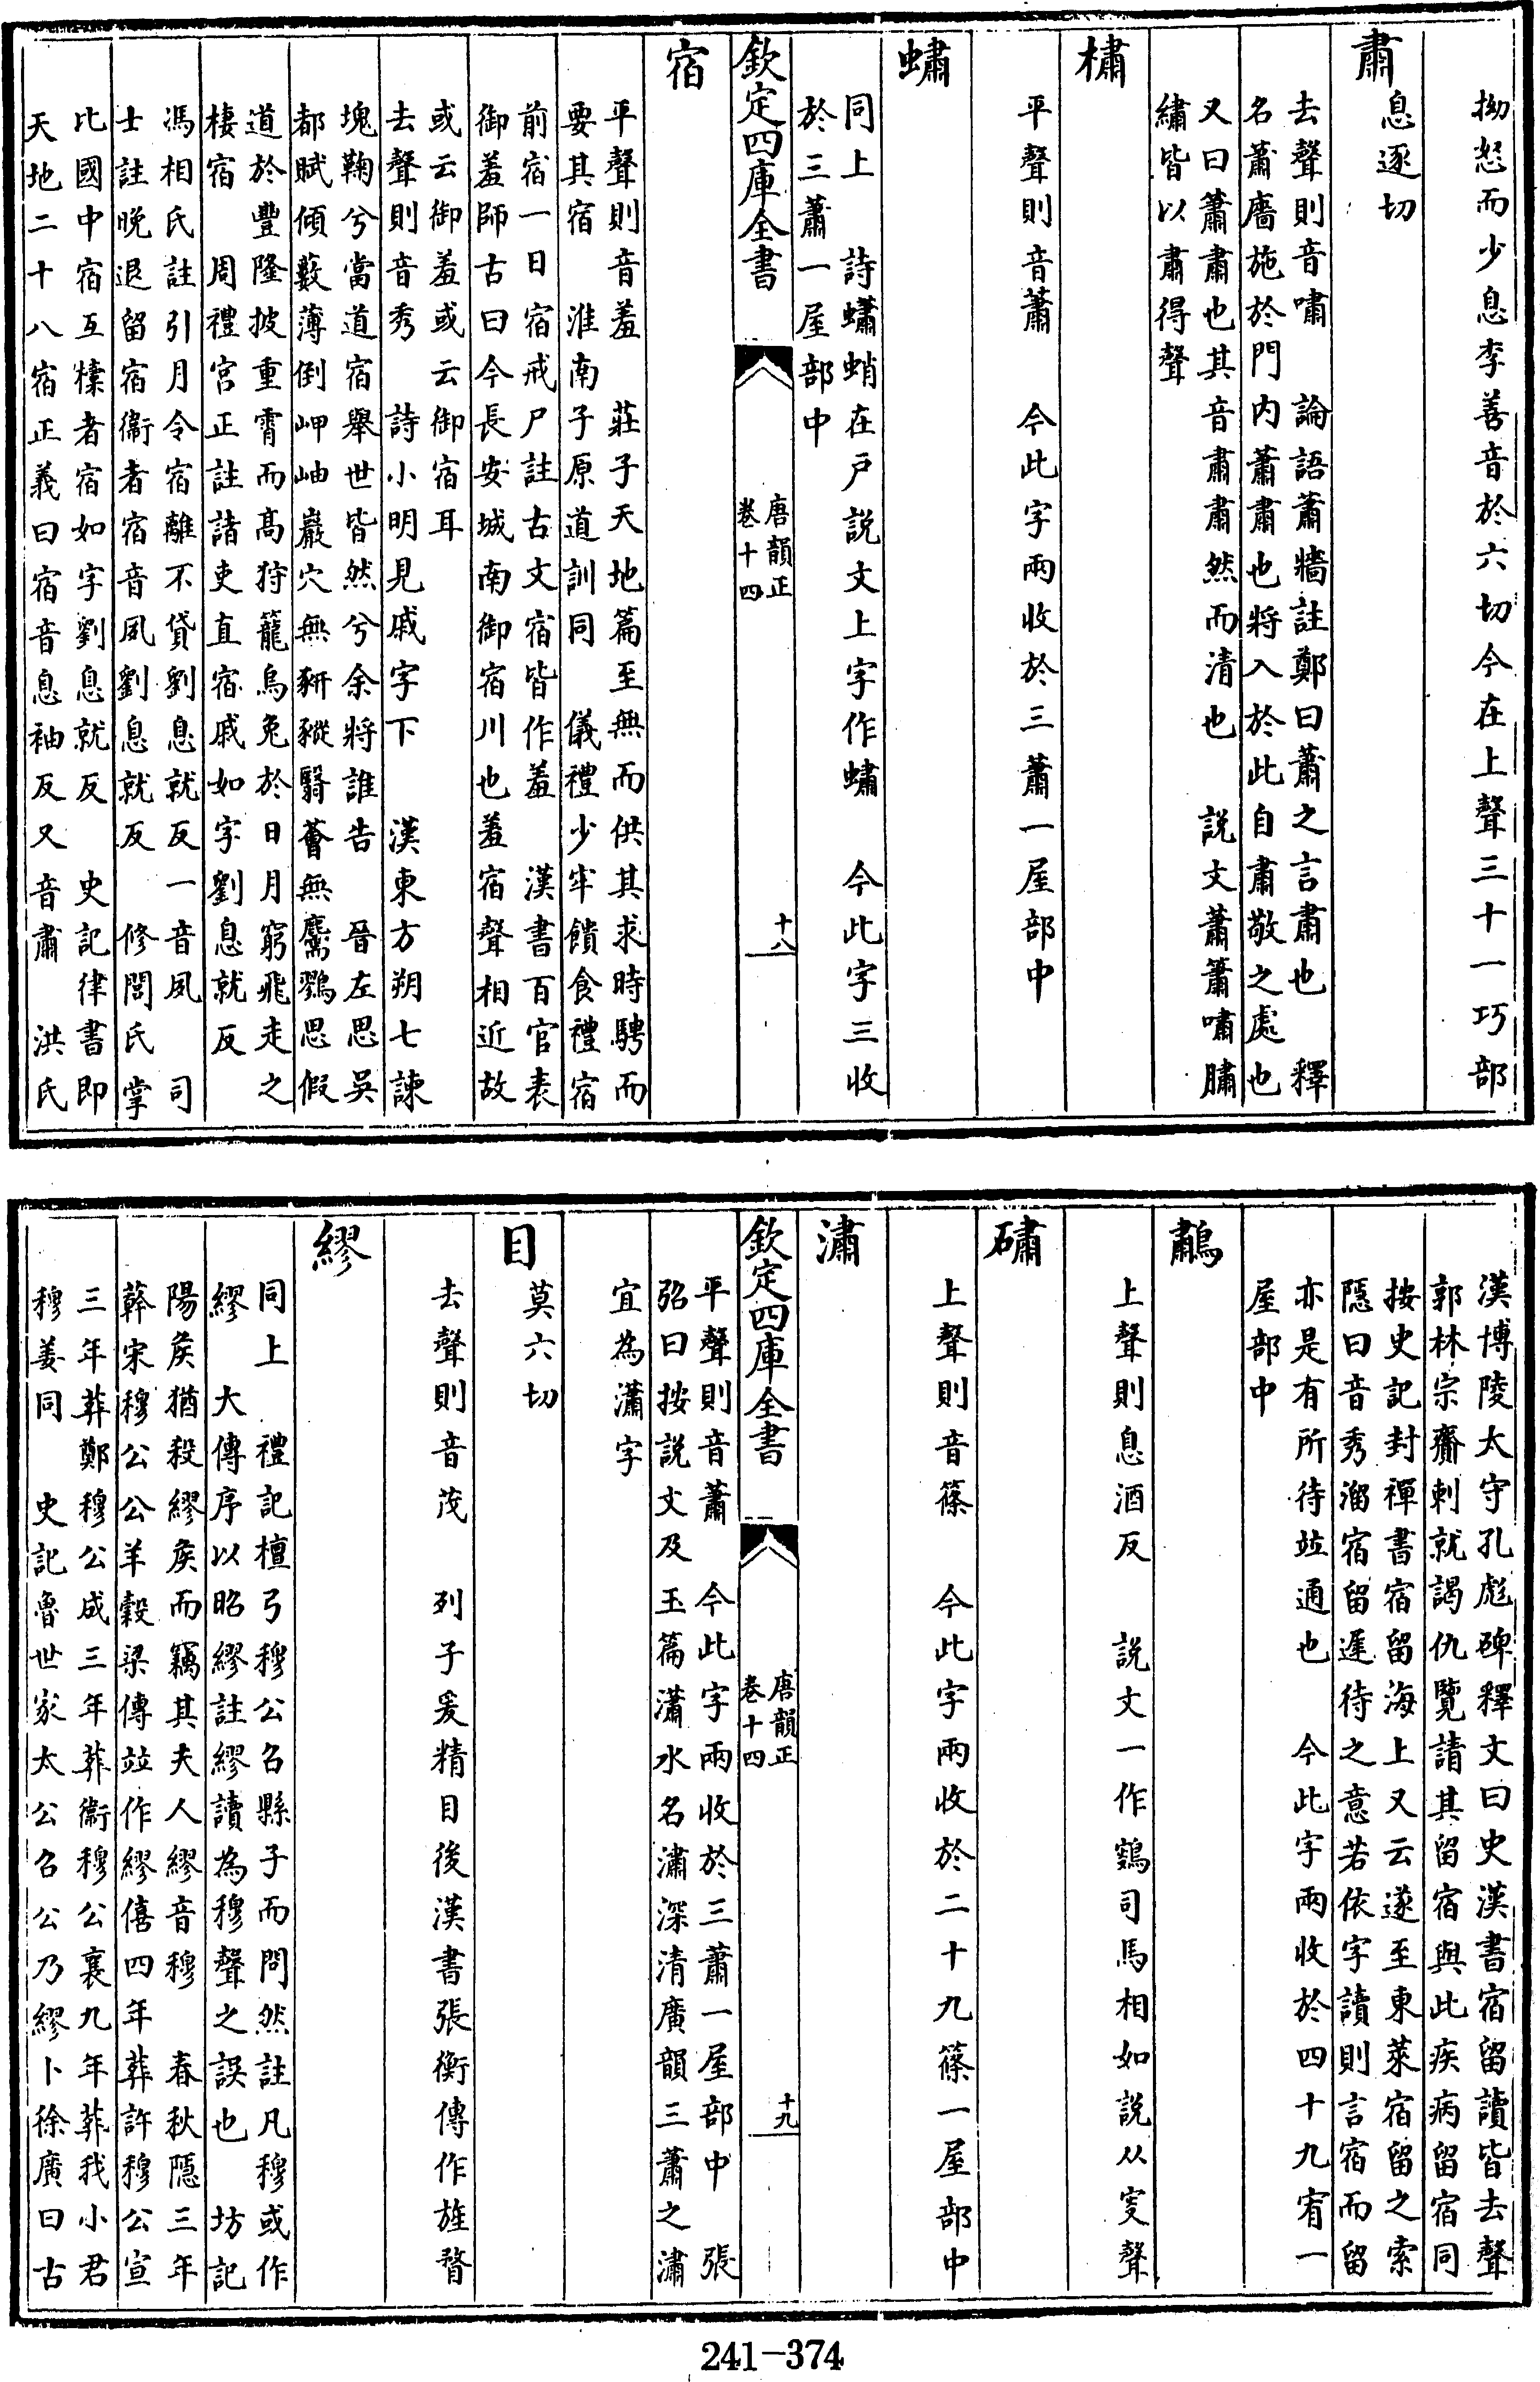 拗怒而少息李善音於六切今在上聲三十一巧部
肅
息逐切
去聲則音嘯　論語蕭牆註鄭曰蕭之言肅也　釋
名蕭廧施於門内蕭肅也將入於此自肅敬之處也
又曰簫肅也其音肅肅然而清也　説文蕭簫嘯膅
繡皆以肅得聲
橚
平聲則音蕭　今此字兩收於三蕭一屋部中
蟰
同上　詩蟰蛸在戸説文上字作蟰　今此字三收
於三蕭一屋部中
欽定四庫全書
唐韻正
卷十四
十八
宿
平聲則音羞　莊子天地篇至無而供其求時騁而
要其宿　淮南子原道訓同　儀禮少牢饋食禮宿
前宿一日宿戒尸註古文宿皆作羞　漢書百官表
御羞師古曰今長安城南御宿川也羞宿聲相近故
或云御羞或云御宿耳
去聲則音秀　詩小明見戚字下　漢東方朔七諫
塊鞠兮當道宿舉世皆然兮余將誰告　晉左思吳
都賦傾藪薄倒岬岫巖穴無豜豵翳薈無麢鷚思假
道於豐隆披重霄而高狩籠烏兔於日月窮飛走之
棲宿　周禮宫正註諸吏直宿戚如字劉息就反
馮相氏註引月令宿離不貸劉息就反一音夙　司
士註晚退留宿衞者宿音夙劉息就反　修閭氏掌
比國中宿互㯓者宿如字劉息就反　史記律書即
天地二十八宿正義曰宿音息袖反又音肅　洪氏
漢博陵太守孔彪碑釋文曰史漢書宿留讀皆去聲
郭林宗齎刺就謁仇覽請其留宿與此疾病留宿同
按史記封禪書宿留海上又云遂至東萊宿留之索
隱曰音秀溜宿留遲待之意若依字讀則言宿而留
亦是有所待竝通也　今此字兩收於四十九宥一
屋部中
鷫
上聲則息酒反　説文一作鷞司馬相如説从叜聲
䃤
上聲則音篠　今此字兩收於二十九篠一屋部中
潚
欽定四庫全書
唐韻正
卷十四
十九
平聲則音蕭　今此字兩收於三蕭一屋部中　張
弨曰按説文及玉篇瀟水名潚深清廣韻三蕭之潚
宜為瀟字
目
莫六切
去聲則音茂　列子爰精目後漢書張衡傳作旌瞀
繆
同上　禮記檀弓穆公召縣子而問然註凡穆或作
繆　大傳序以昭繆註繆讀為穆聲之誤也　坊記
陽矦猶殺繆矦而竊其夫人繆音穆　春秋隱三年
葬宋穆公公羊穀梁傳竝作繆僖四年葬許穆公宣
三年葬鄭穆公成三年葬衞穆公襄九年葬我小君
穆姜同　史記魯世家太公召公乃繆卜徐廣曰古
241-374